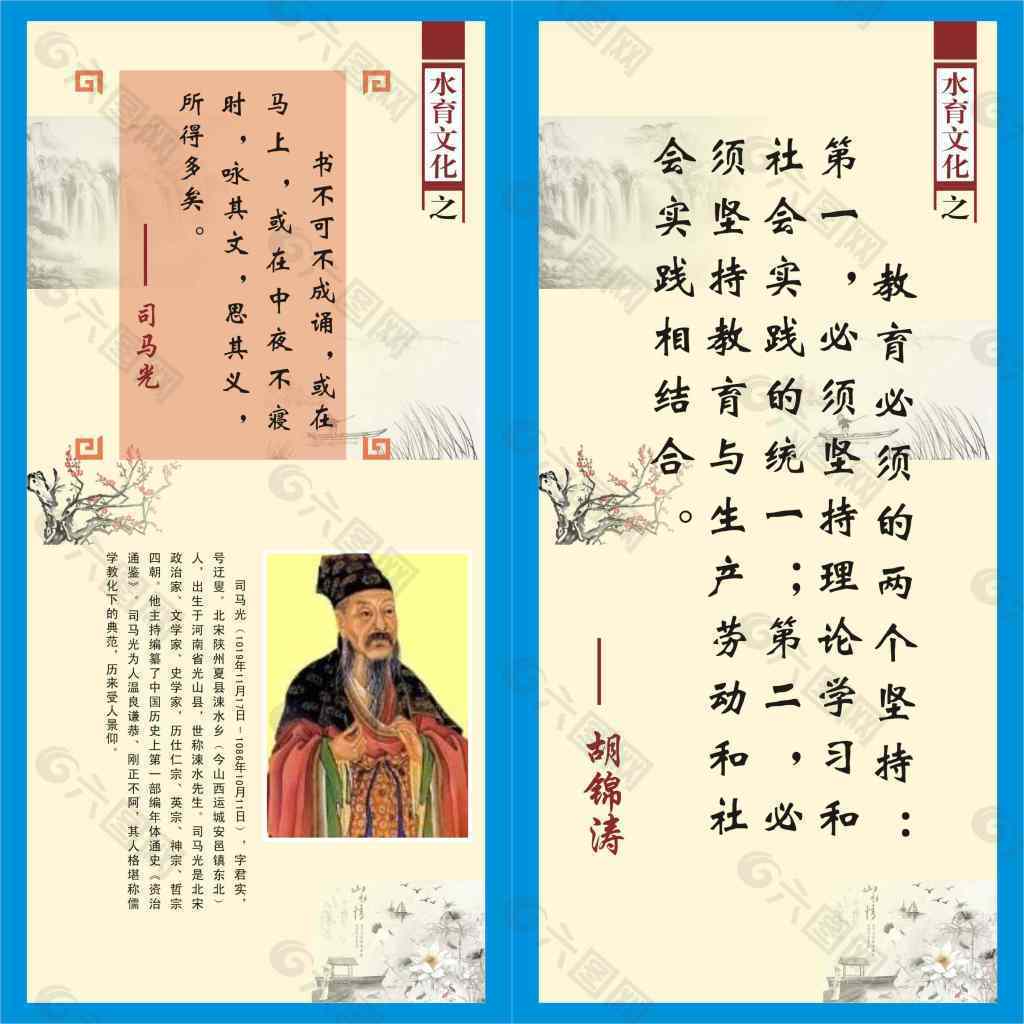 水育文化
之
书不可不成诵，或在
马上，或在中夜不寝
时，咏其文，思其义，
所得多矣。
——司马光
司马光（1019年11月17日-1086年10月11日），字君实，
号迂叟。北宋陕州夏县涑水乡（今山西运城安邑镇东北）
人，出生于河南省光山县，世称涑水先生。司马光是北宋
政治家、文学家、史学家，历仕仁宗、英宗、神宗、哲宗
四朝。他主持编纂了中国历史上第一部编年体通史《资治
通鉴》 司马光为人温良谦恭、刚正不阿，其人格堪称儒
学教化下的典范，历来受人景仰。
水育文化
之
教育必须的两个坚持：
第一，必须坚持理论学习和
社会实践的统一；第二，必
须坚持教育与生产劳动和社
会实践相结合。
——胡锦涛
六图网